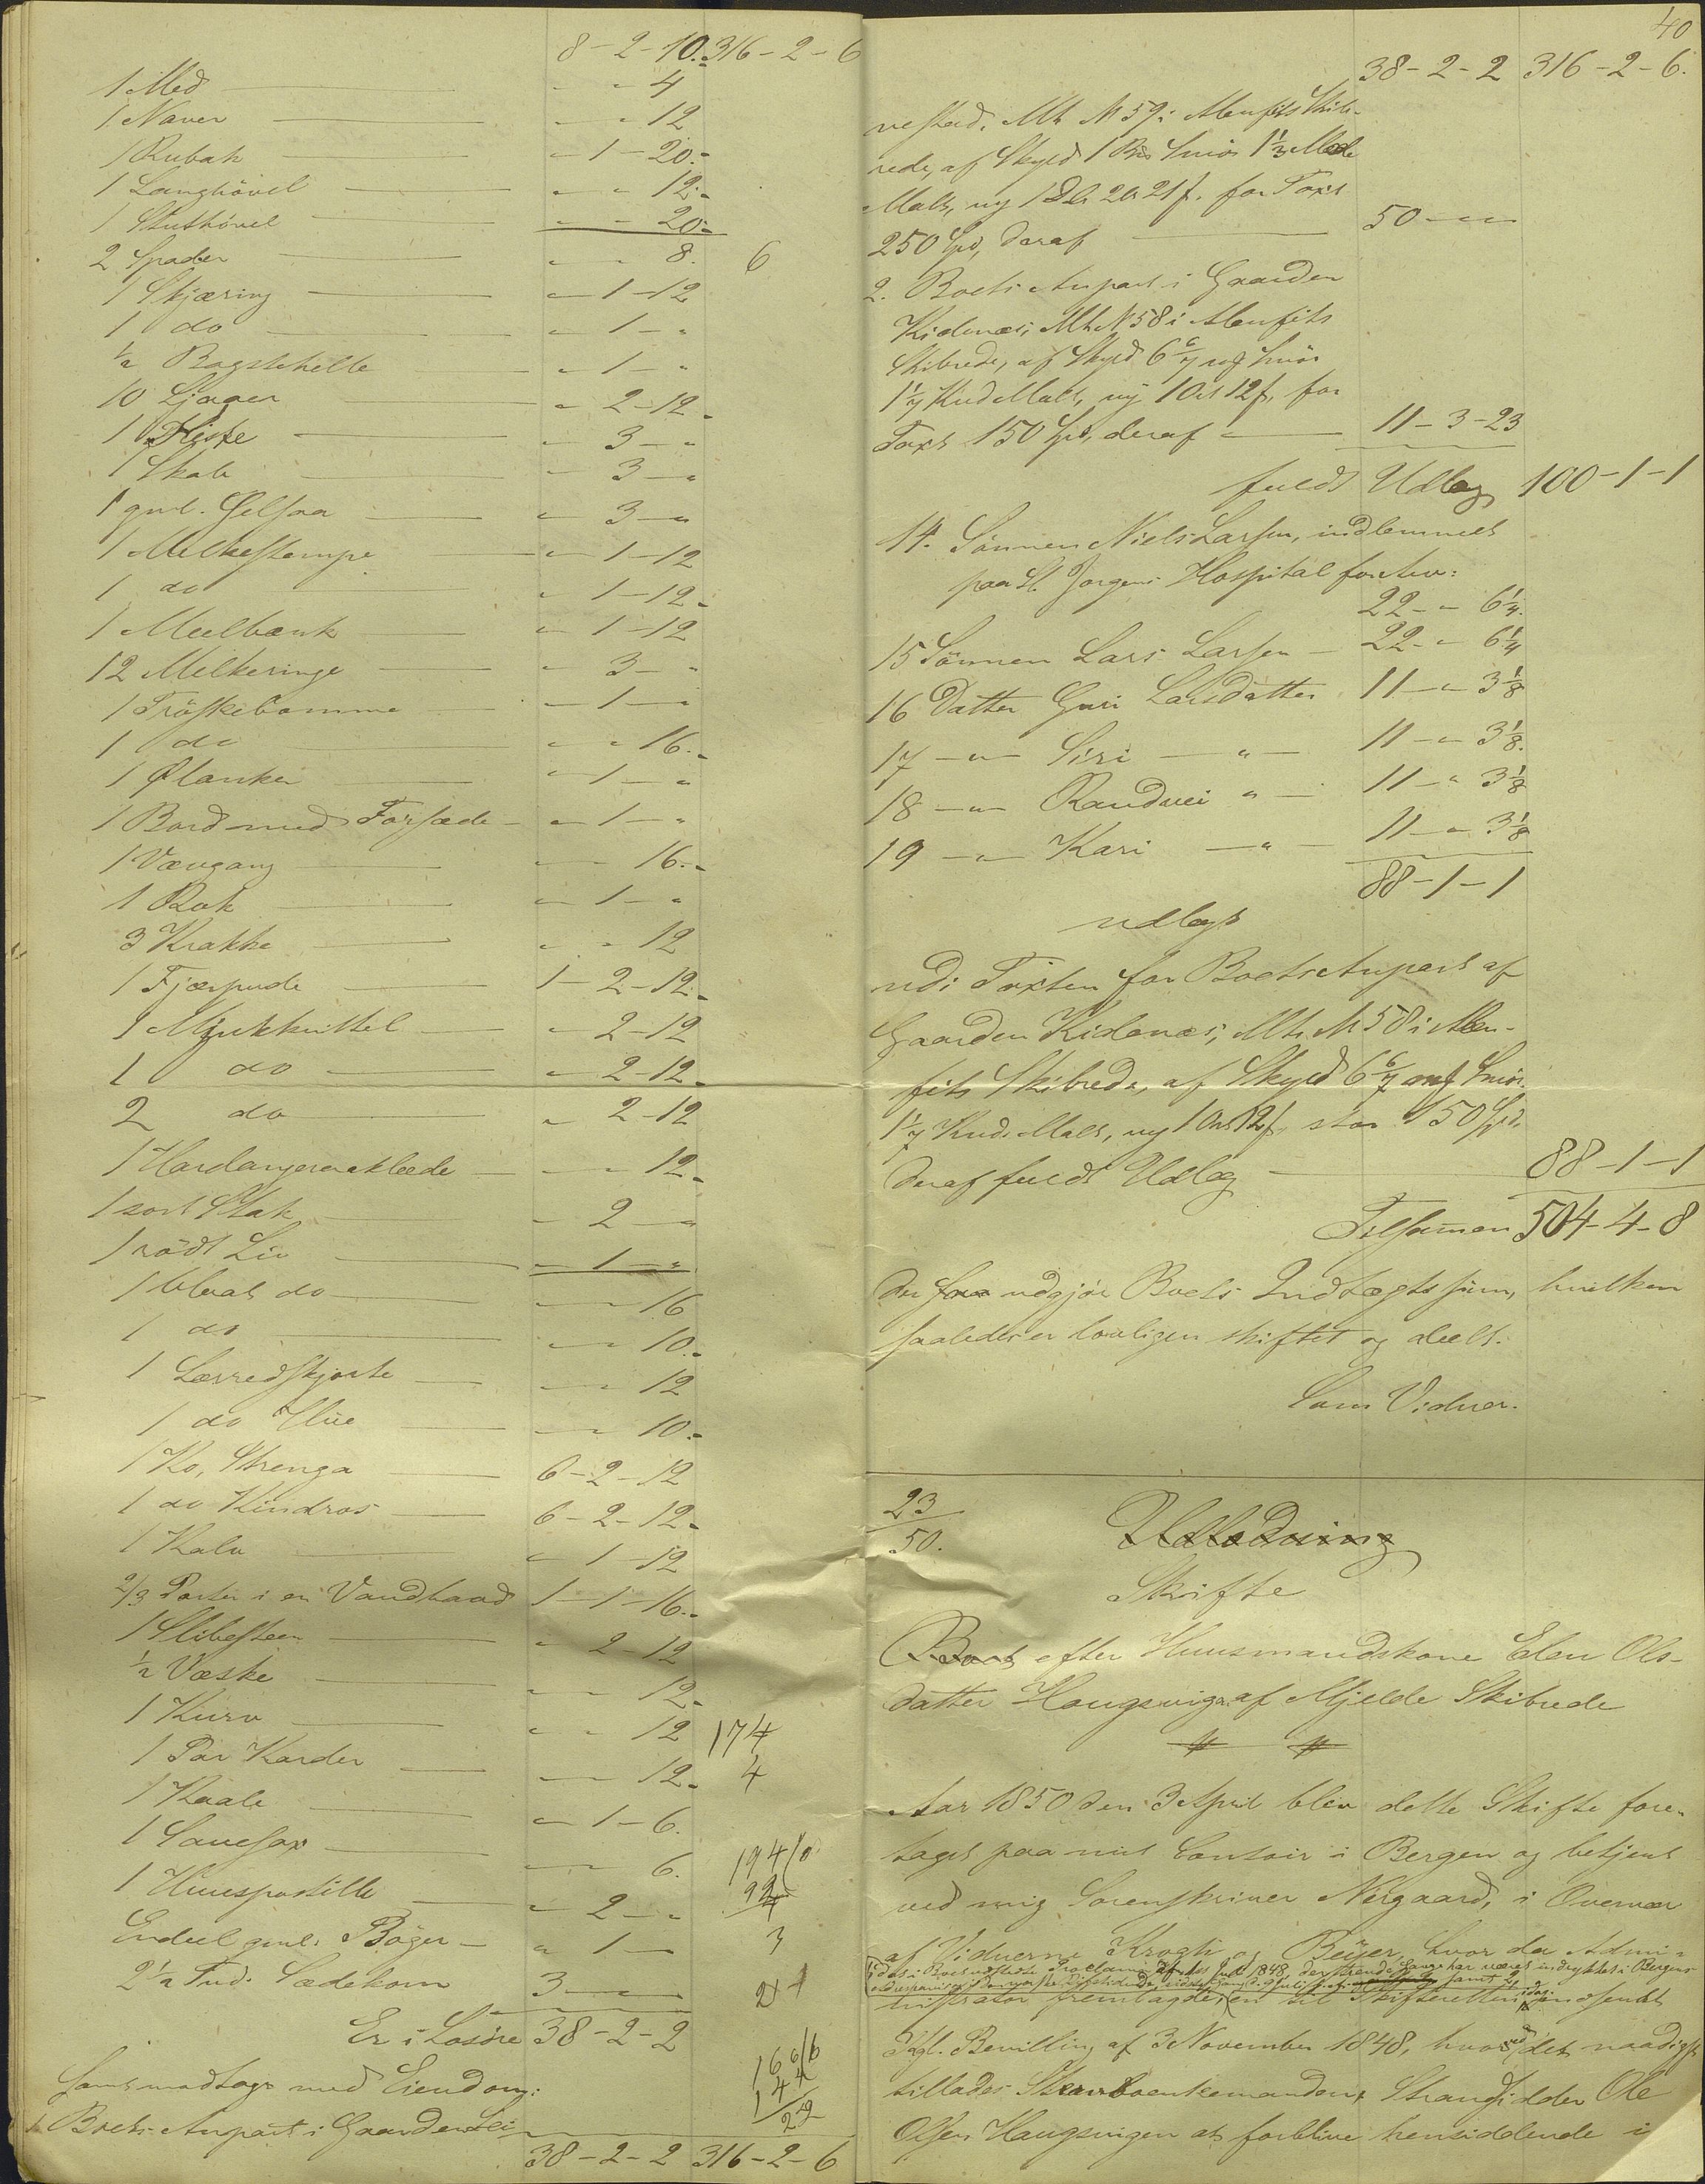 8 - 2 - 10. 316 - 2 - 6
1 Med - - 4
1 Naver - - 12
1 Rubak - 1 - 20.
1 Langhövel - - 12.
1 Stuthövel - - 20.
2 Spader - - 8. 6
1 Skjæring - 1 - 12
1 do - 1 - "
½ Bagstehelle - 1 - "
10 Ljaaer - 2 - 12.
1 Kiste - 3 - "
1 Skab - 3 - "
1 gml. - 3 - "
1 Melkestampe - 1 - 12
1 do - 1 - 12.
1 Meelbænk - 1 - 12
12 Melkeringe - 3 - "
1 Tröske - 1 - "
1 do - - 16.
1 Planker - 1 - "
1 Bord med Forsæde - 1 - "
1 Vævgang - - 16.
1 Rok - 1 - "
3 Krakke - - 12
1 Fjærpude 1 - 2 - 12.
1 - 2 - 12
1 do - 2 - 12.
2 do - 2 - 12
1 Hardangeraaklæde - - 12.
1 sort Stak - 2 - "
1 rödt Liv - 1 - "
1 blaat do - - 16
1 do - - 10.
1 Lærredskjorte - - 12
1 do Hue - - 10.
1 Ko, Strenga 6 - 2 - 12
1 do Kindros 6 - 2 - 12.
1 Kalv - 1 - 12
2/3 Parter i en Vandbaad 1 - 1 - 16.
1 Slibesteen - 2 - 12
½ Væske - - 12.
1 Kurv - - 12 174
1 Par Karder - - 12. 4
1 Kaabe - 1 - 6.
1 Sauesax - - 6. 194
1 Huuspostille - 2 - "
Endeel gml. Bøger - 1 - 3
2½ Tnd. Sædekorn 3 - - 24
Er i Løsöre 38 - 2 - 2
samt modtage med Eiendom:
1. Boets Anpart i Gaarden Lei-
38 - 2 - 2 316 - 2 - 6
40
38 - 2 - 2 316 - 2 - 6.
vestad, Mt. № 59 i Alenfits Skib-
rede, af Skyld 1 Bp Smör 1⅓ Mæle
Malt, ny 1 Dlr 2 Ort 21 f. for Taxt
250 Spd, deraf 50 - - -
2. Boets Anpart i Gaarden
Kidenæs, Mt № 58 i Alenfits
Skibrede, af Skyld 6 6/7 mk Smör
1 1/7 Knd Malt, ny 1 Ort 12 f, for
Taxt 150 Spd, deraf 11 - 3 - 23
fuldt Udlæg 100 - 1 - 1
14. Sönnen Niels Larsen, indlemmet
paa St. Jörgens Hospital for Arv:
22 - - 6¼.
15 Sönnen Lars Larsen - 22 - - 6¼
16 Datter Guri Larsdatter 11 - - 3⅛
17 - " - Siri - " - 11 - - 3⅛.
18 - " - Randvei " - 11 - " 3⅛
19 - " - Kari - " - 11 - - 3⅛
88 - 1 - 1
udlagt
udi Taxten for Boets Anpart af
Gaarden Kidenæs, Mt. № 58 i Alen-
fits Skibrede, af Skyld 6 6/7 mk Smör.
1 1/7 Knd. Malt, ny 1 Ort 12 f, stor 150 Spd.
deraf fuldt Udlæg - 88 - 1 - 1
Tilsammen 504 - 4 - 8
der udgjör Boets Indtægtssum, hvilken
saaledes er lovligen skiftet og deelt.
Som Vidner.
23
50.
Udlodning
Skifte
Boet efter Huusmandskone Elen Ols-
datter Haugsvigen af Mjelde Skibrede
Aar 1850 den 3 April blev dette Skifte fore-
taget paa mit Contoir i Bergen og betjent
ved mig Sorenskriver Nergaard, i Overvær
af Vidnerne Krogh og Beyer, hvor da Admi-
nistrator fremlagde, en til Skifteretten indsendt
Kgl. Bevilling af 3 November 1848, hvorved det naadigst
tillades Enkemanden, Strandsidder Ole
Olsen Haugsvigen at forblive hensiddende i